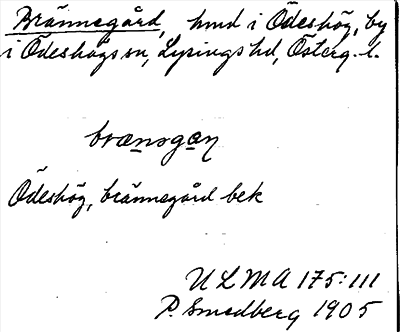 Brännegård, hmd i Ödeshög, by
i Ödeshögs sn, Lysings hd, Österg. l.
brænsgan
Ödeshög, brännegård bek
ULMA 175:111
P. Smedberg 1905